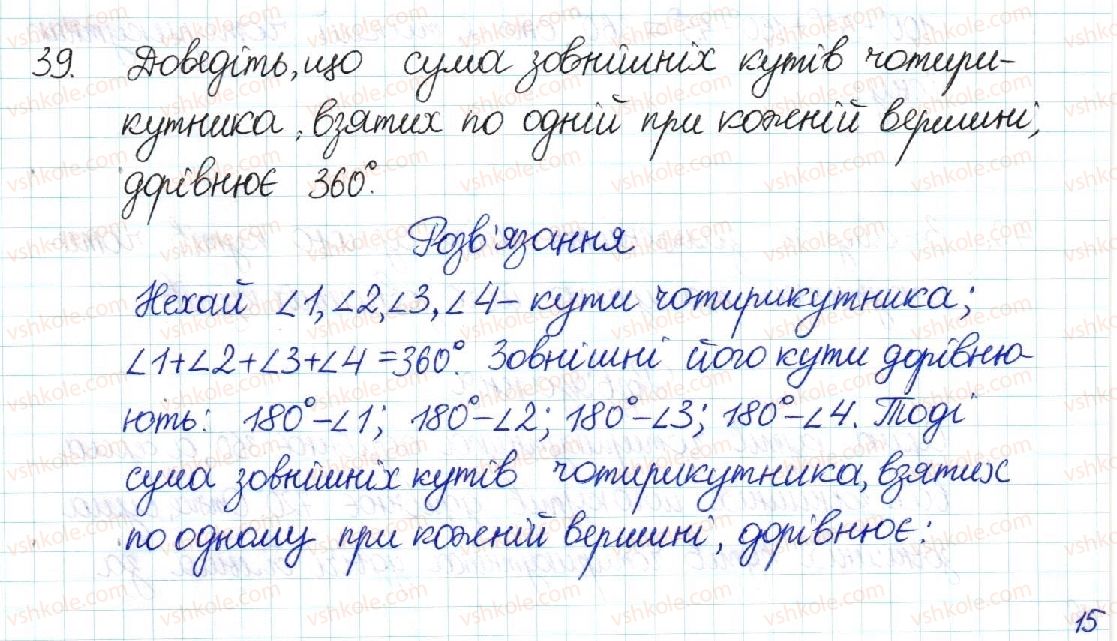 39. Доведіть, що сума зовнішніх кутів чотири-
кутника, взятих по одній при кожній вершині,
дорівнює 360°.
Розв'язання
Нехай ∠1, ∠2, ∠3, ∠4 – кути чотирикутника;
∠1+∠2+∠3+∠4=360°. Зовнішні його кути дорівню-
ють: 180°–∠1; 180°–∠2; 180°–∠3; 180°–∠4. Тоді
сума зовнішніх кутів чотирикутника, взятих
по одному при кожній вершині, дорівнює:
15